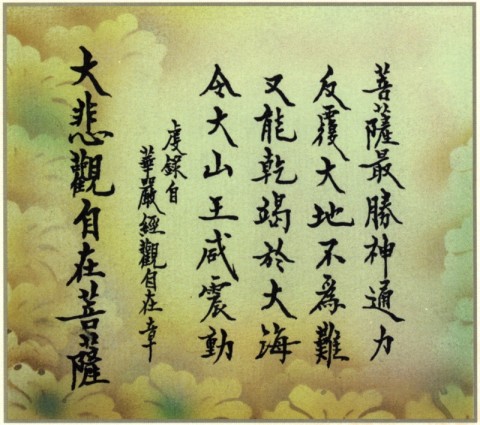 菩薩最勝神通力
反覆大地不為難
又能乾竭於大海
令大山王咸震動
虔錄自
華嚴經觀自在章
大悲觀自在菩薩